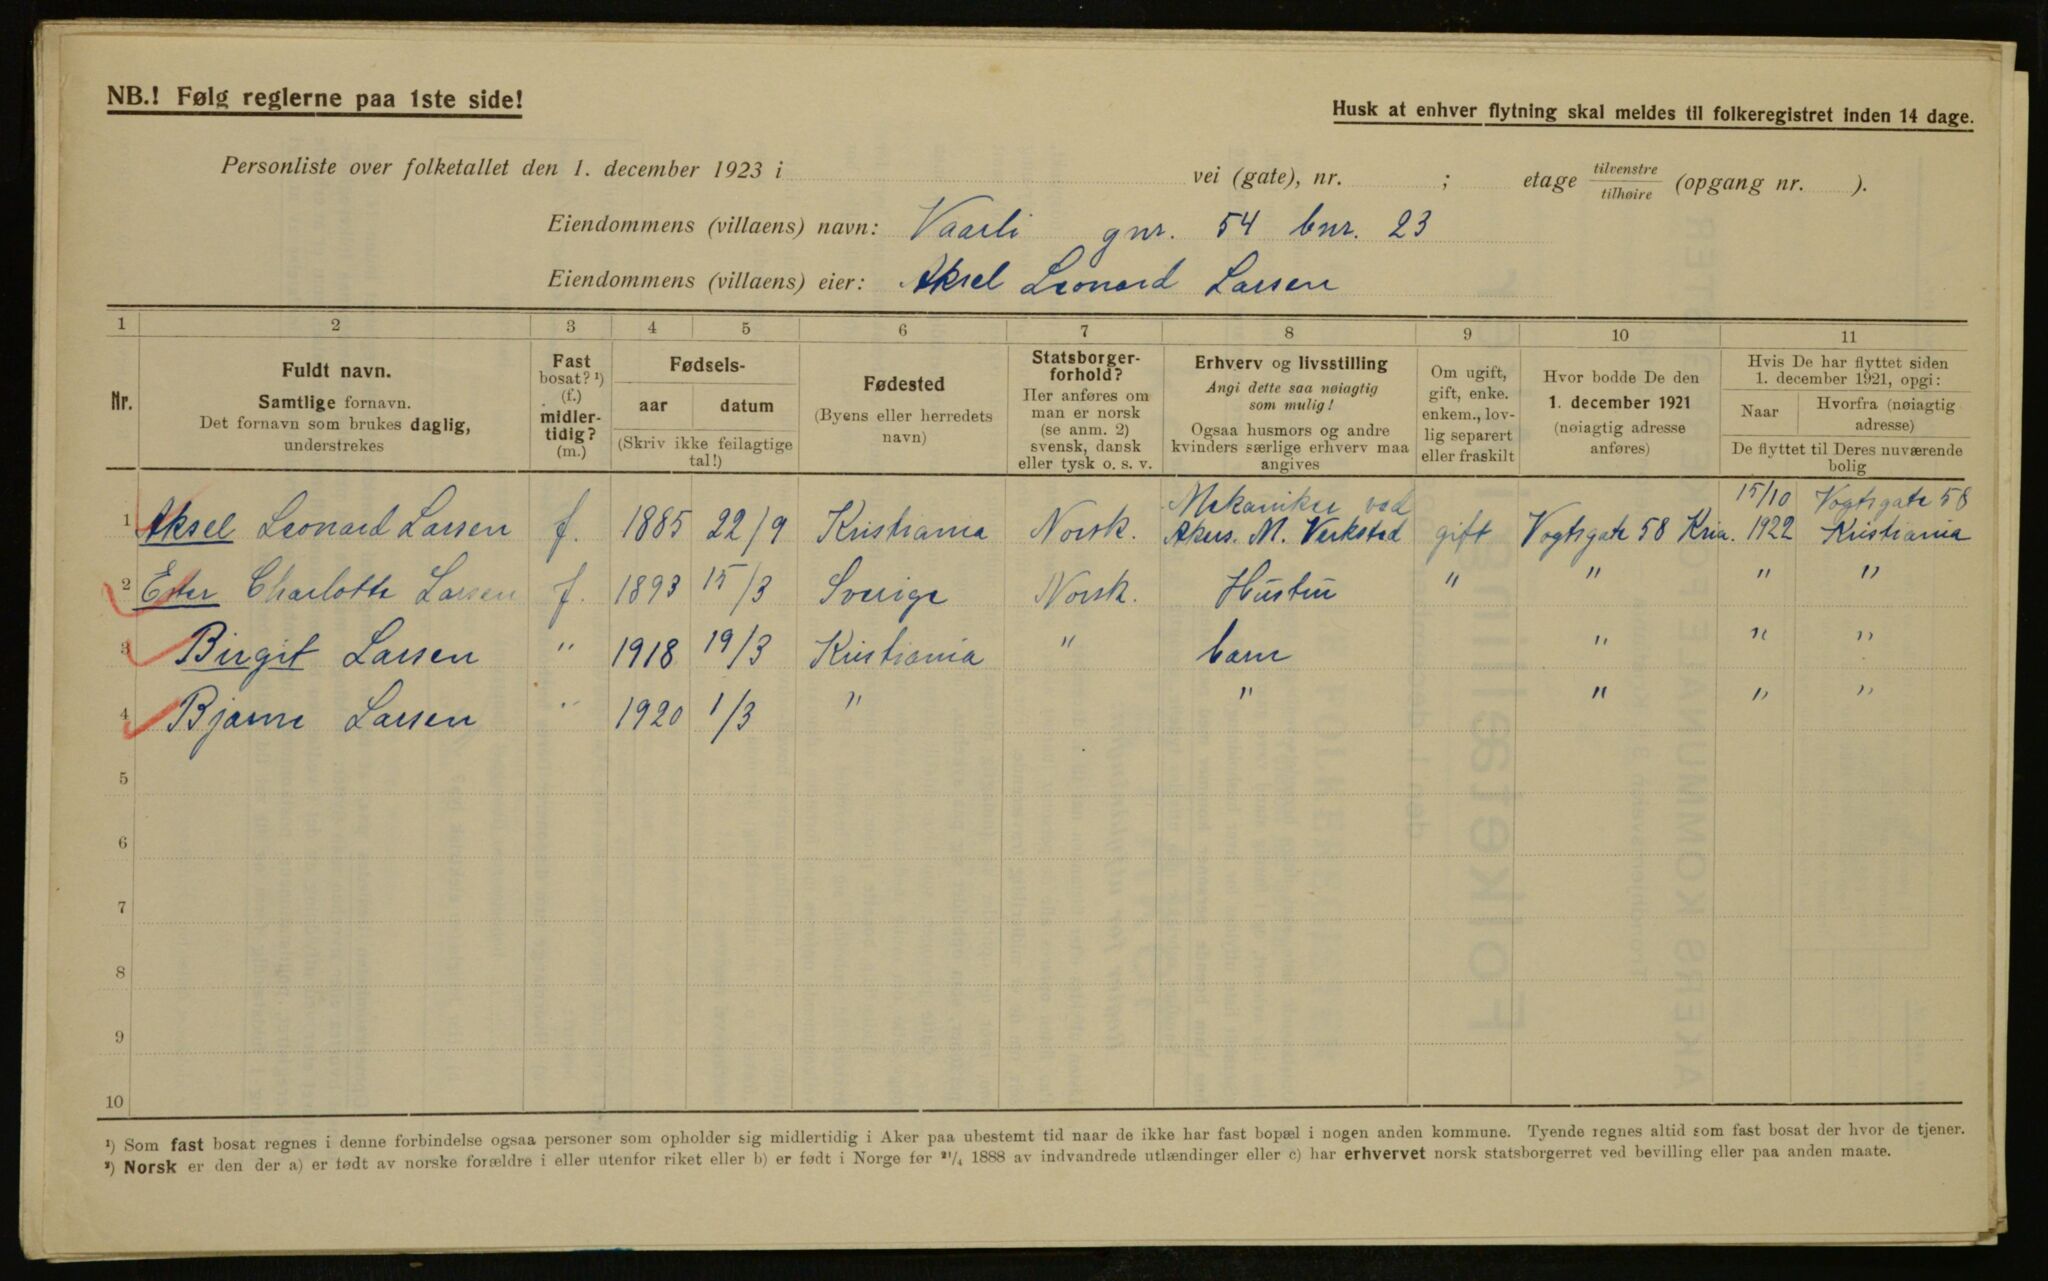 NB.! Følg reglerne paa 1ste side!
Husk at enhver flytning skal meldes til folkeregistret inden 14 dage.
Personliste over folketallet den 1. december 1923 i vei (gate), nr. ; etage tilvenstre tilhøire (opgang nr. ).
Eiendommens (villaens) navn: Vaarli gnr. 54 bnr. 23
Eiendommens (villaens) eier: Aksel Leonard Larsen
1 2 3 4 5 6 7 8 9 10 11
Nr.
Fuldt navn.
Samtlige fornavn.
Det fornavn som brukes daglig,
understrekes
Fast
bosat? ¹)
(f.)
midler-
tidig?
(m.)
Fødsels-
aar datum
(Skriv ikke feilagtige
tal!)
Fødested
(Byens eller herredets
navn)
Statsborger-
forhold?
Her anføres om
man er norsk
(se anm. 2)
svensk, dansk
eller tysk o. s. v.
Erhverv og livsstilling
Angi dette saa nøiagtig
som mulig!
Ogsaa husmors og andre
kvinders særlige erhverv maa
angives
Om ugift,
gift, enke.
enkem., lov-
lig separert
eller fraskilt
Hvor bodde De den
1. december 1921
(nøiagtig adresse
anføres)
Hvis De har flyttet siden
1. december 1921, opgi:
Naar Hvorfra (nøiagtig
adresse)
De flyttet til Deres nuværende
bolig
Mekaniker ved 15/10 Vogtsgate 58
1 Aksel Leonard Larsen f. 1885 22/9 Kristiania Norsk. Akers. M. Verksted gift Vogtsgate 58 Kria. 1922 Kristiania
2 Ester Charlotte Larsen f. 1893 15/3 Sverige Norsk. Hustru " " " "
3 Birgit Larsen " 1918 19/3 Kristiania " barn " " "
4 Bjarne Larsen " 1920 1/3 " " " " "
5
6
7
8
9
10
¹) Som fast bosat regnes i denne forbindelse ogsaa personer som opholder sig midlertidig i Aker paa ubestemt tid naar de ikke har fast bopæl i nogen anden kommune. Tyende regnes altid som fast bosat der hvor de tjener.
²) Norsk er den der a) er født av norske forældre i eller utenfor riket eller b) er født i Norge før ²¹/₄ 1888 av indvandrede utlændinger eller c) har erhvervet norsk statsborgerret ved bevilling eller paa anden maate.